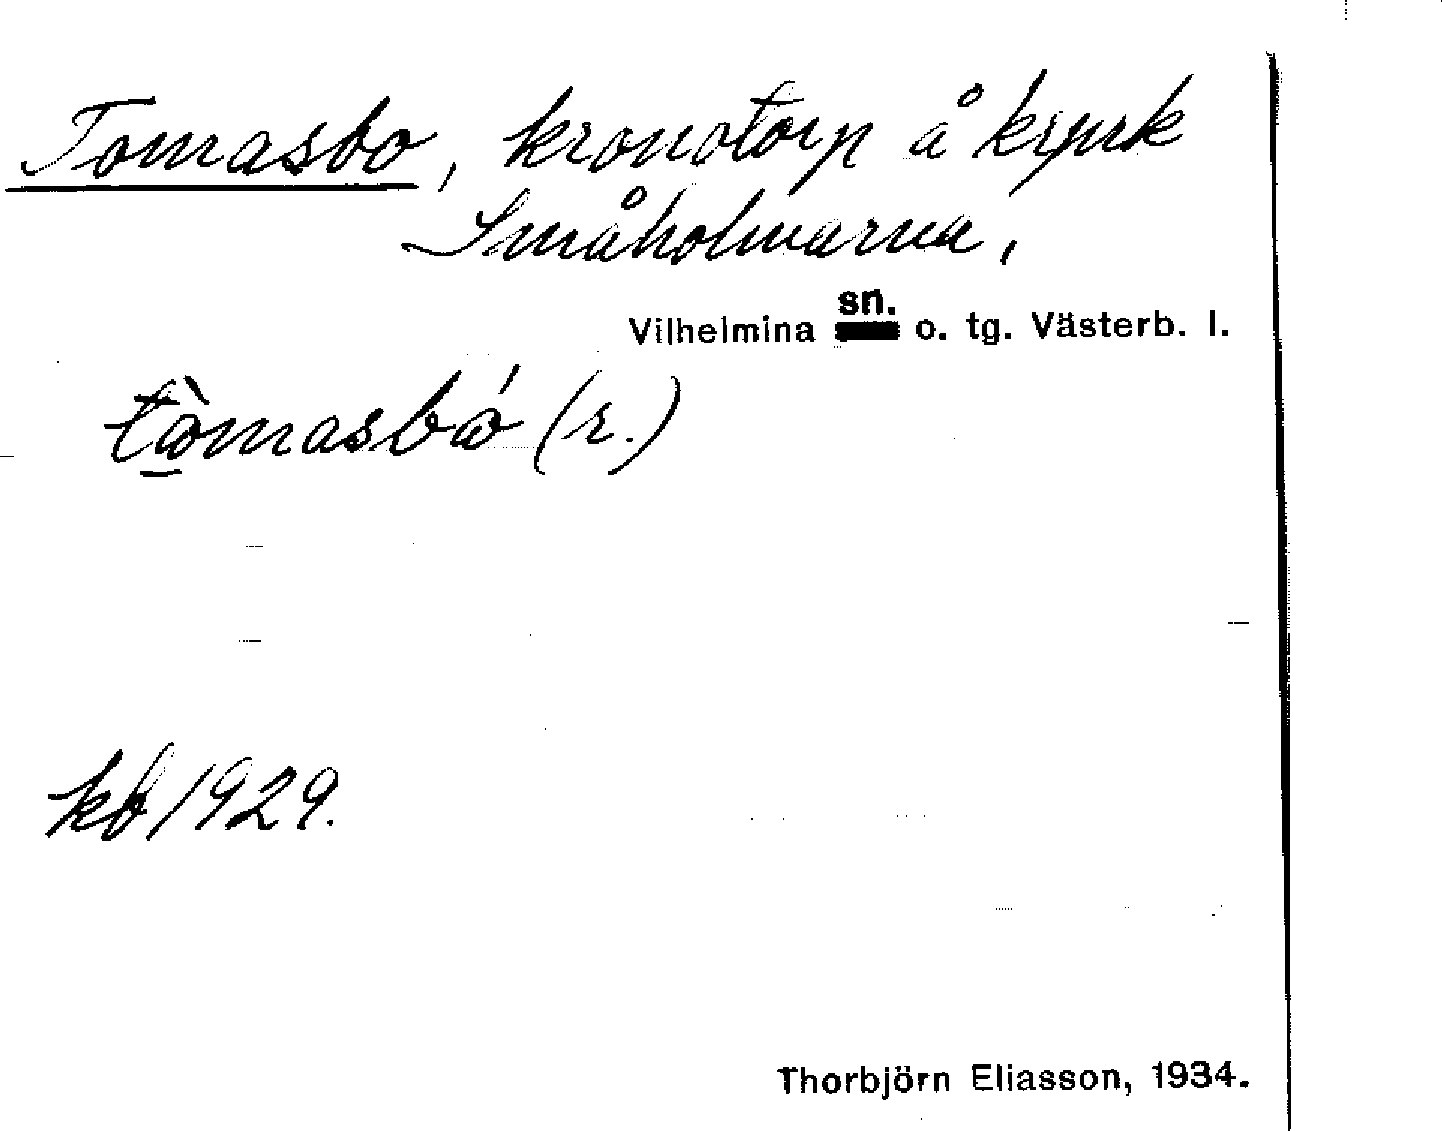 Tomasbo, kronotorp å krpk
Småholmarna,
sn.
Vilhelmina o. tg. Västerb. l.
tò̱masbó (r.)
kb 1929.
Thorbjörn Eliasson, 1934.